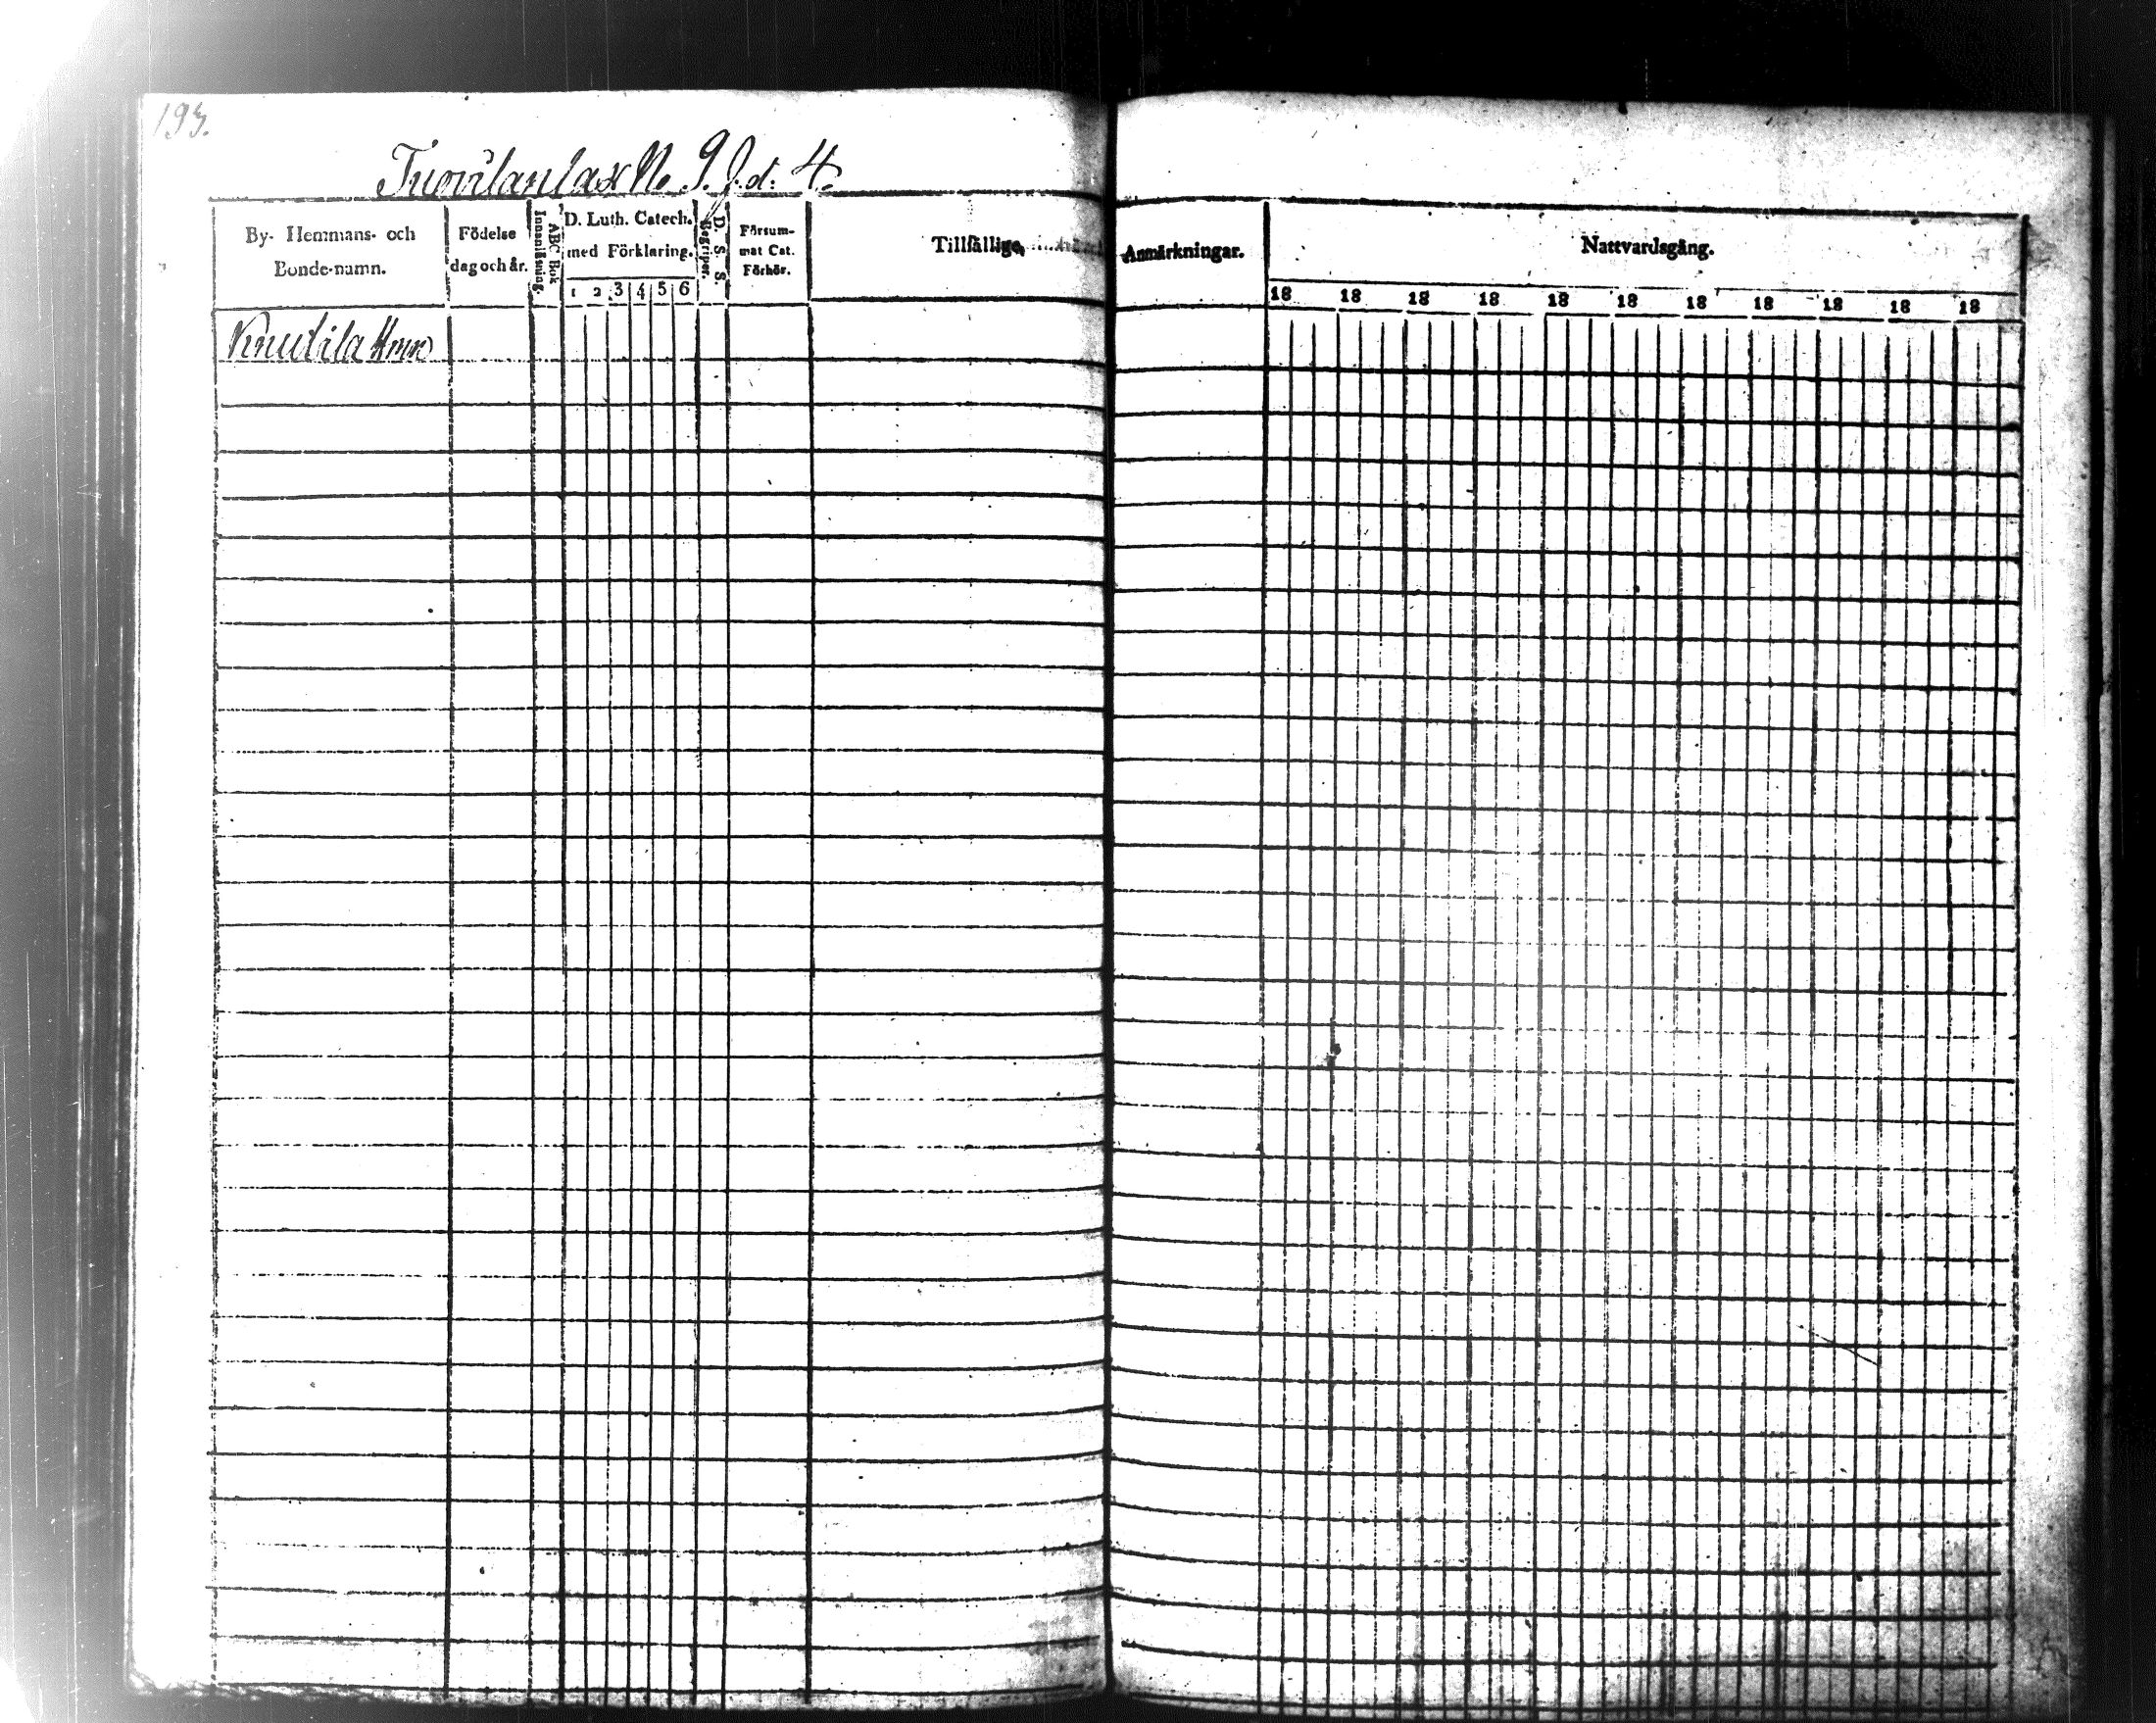 193.
Tuovilanlax No 9. J.d. 4.
By- Hemmans- och
Bonde-namn.
Födelse
dag och år.
ABC Bok
Innanläsning.
D. Luth. Catech.
med Förklaring.
1 2 3 4 5 6
D. S. S.
Begriper.
Försum-
mat Cat.
Förhör.
Tillfällige
Anmärkningar.
Nattvardsgång.
18 18 18 18 18 18 18 18 18 18 18
Knutila Hmn